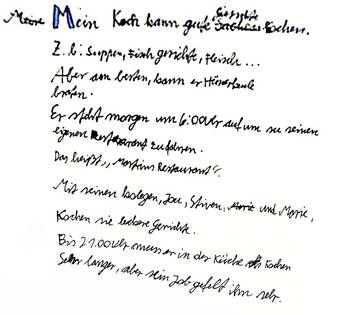 Meine Mein Koch kann gute Gerichte kochen.
Z.b: Suppen, Fisch gerichte, Fleisch...
Aber am besten, kann er Hünerkeule
braten.
Er steht morgen um 6:00 Uhr auf um zu seinen
eigenen Restaurant zu fahren.
Das heißt „Martins Restaurant“.
Mit seinen kolegen, Jou, Stiven, und Marie,
Kochen sie leckere Gerichte.
Bis 21.00 Uhr muss er in der Küche Kochen
Sehr langer, aber sein Job gefelt ihm sehr.